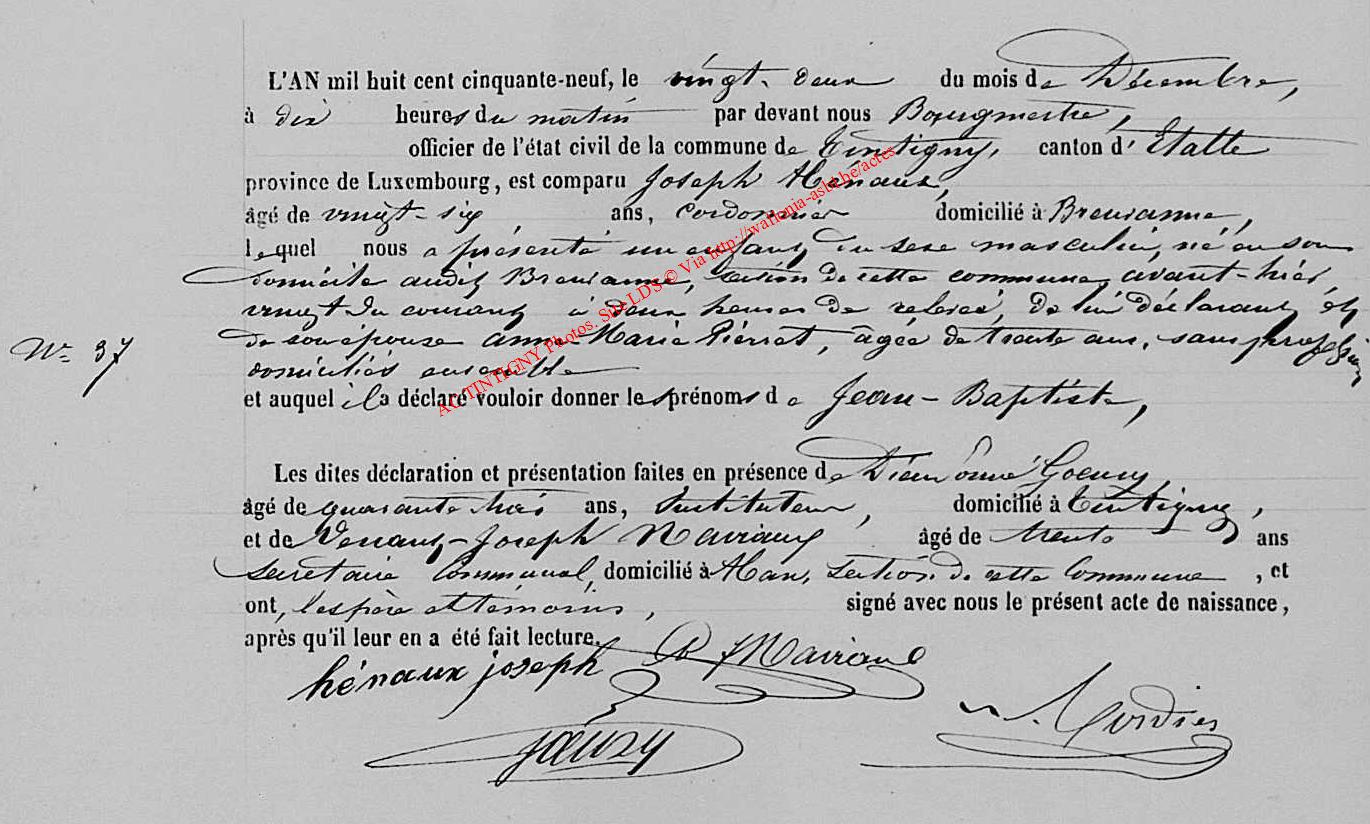 L'AN mil huit cent cinquante-neuf, le vingt-deux du mois de Décembre,
à dix heures du matin par devant nous Bourgmestre,
officier de l'état civil de la commune de Tintigny, canton d'Etalle
province de Luxembourg, est comparu Joseph Hénaux,
âgé de vingt-six ans, cordonnier domicilié à Breuvanne,
lequel nous a présenté un enfant du sexe masculin, né en son
domicile audit Breuvanne, section de cette commune, avant-hier
vingt du courant à deux heures de relevée, de lui déclarant et
N° 37
de son épouse anne-Marie Pierret, âgée de trente ans, sans profession
domiciliés ensemble
et auquel il a déclaré vouloir donner les prénoms de Jean-Baptiste,
Les dites déclaration et présentation faites en présence de Dieudonné Goeury,
âgé de quarante trois ans, Instituteur, domicilié à Tintigny,
et de Venant-Joseph Maviaux âgé de trente ans
secrétaire Communal, domicilié à Han, section de cette Commune, et
ont, les père et témoins, signé avec nous le présent acte de naissance,
après qu'il leur en a été fait lecture.
hénaux joseph
Goeury
AC TINTIGNY Photos. Site LDS © Via http://wallonia-asbl.be/actes